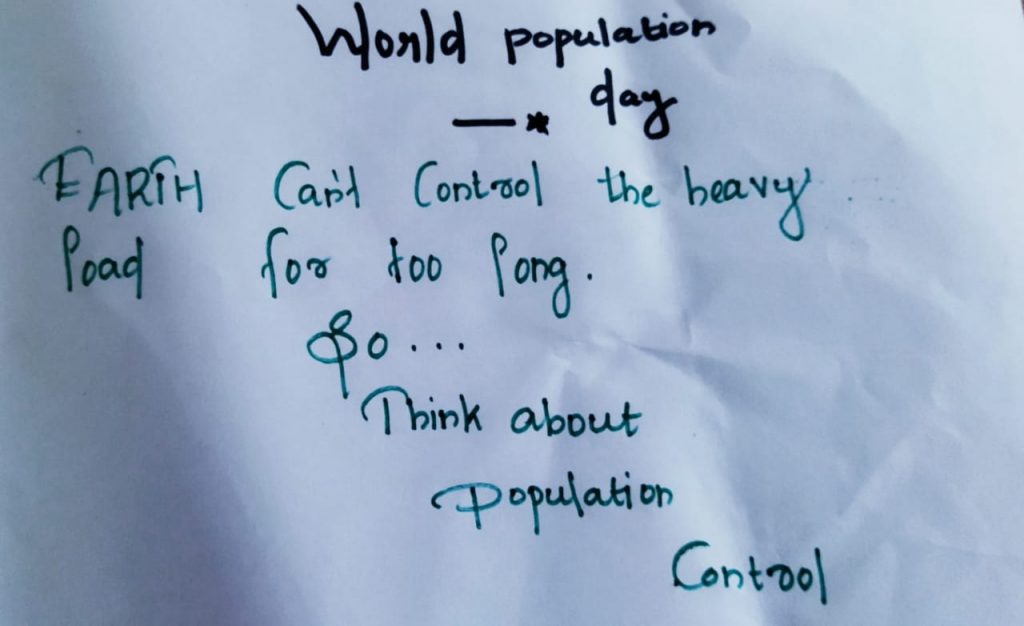 World population
day
— *
EARTH Can't Control the heavy ....
load for too long.
So ...
Think about
Population
Control